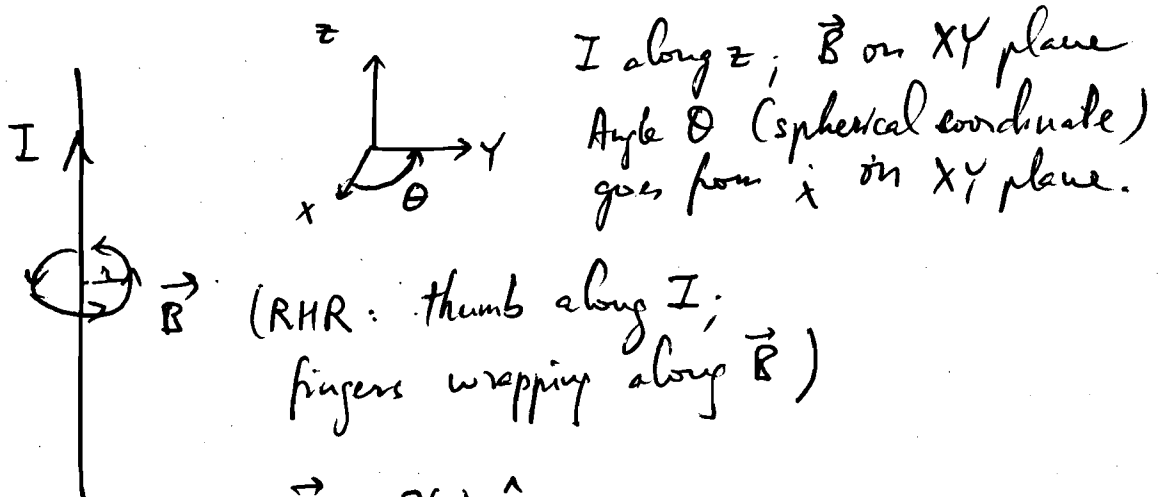 z
I along z ; B⃗ on XY plane
I
Y
Angle θ (spherical coordinate)
x
θ
goes from x on XY plane.
r
B⃗ (RHR : thumb along I ;
fingers wrapping along B⃗ )